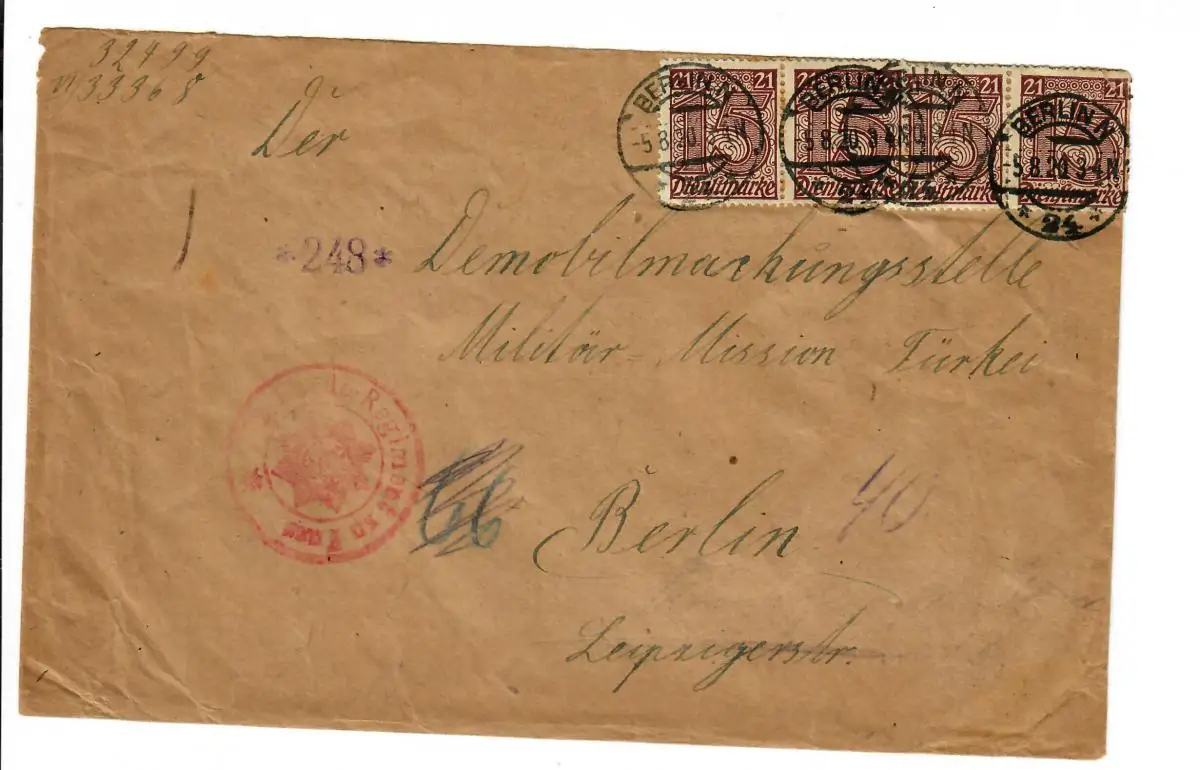 32499
n 33368
Der
*248* Demobilmachungsstelle
Militär-Mission Türkei
Berlin
40
Leipzigerstr.
21 21 21 21 21
15 15 15 15
Dienstmarke Dienstmarke Dienstmarke
BERLIN.N -5.8.20.
24
BERLIN.N 5.8.20.
24
BERLIN.N
24
BERLIN.N -5.8.20. 3-4N
* 24 *
Regiment